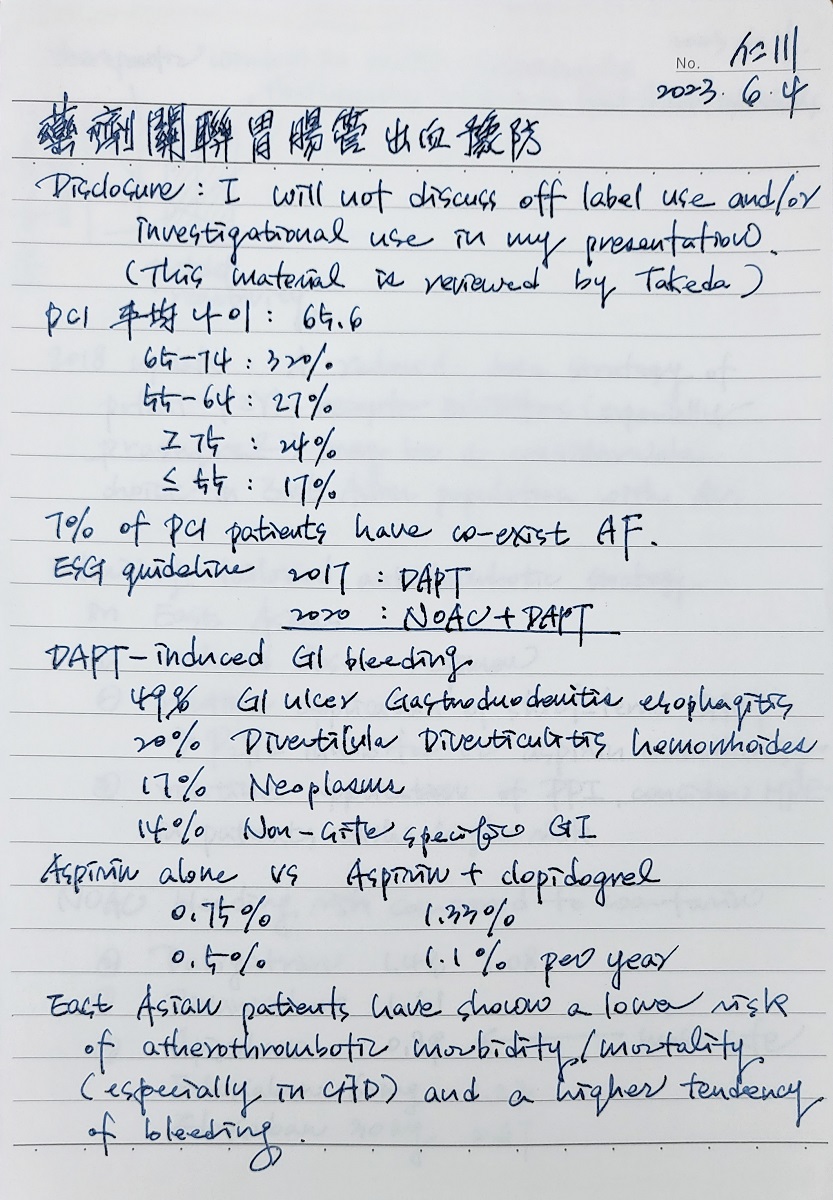 No. 仁川
2023. 6. 4
藥劑關聯胃腸管出血豫防
Disclosure : I will not discuss off label use and/or
investigational use in my presentation.
(This material is reviewed by Takeda)
PCI 平均 나이 : 65.6
65-74 : 32%
55-64 : 27%
≥ 75 : 24%
≤ 55 : 17%
7% of PCI patients have co-exist AF.
ESG guideline 2017 : DAPT
2020 : NOAC + DAPT
DAPT-induced GI bleeding
49% GI ulcer Gastroduodenitis esophagitis
20% Diverticula Diverticulitis hemorrhoides
17% Neoplasms
14% Non-site specific GI
Aspirin alone vs Aspirin + clopidogrel
0.75% 1.33%
0.5% 1.1% per year
East Asian patients have shown a lower risk
of atherothrombotic morbidity/mortality
(especially in CAD) and a higher tendency
of bleeding.